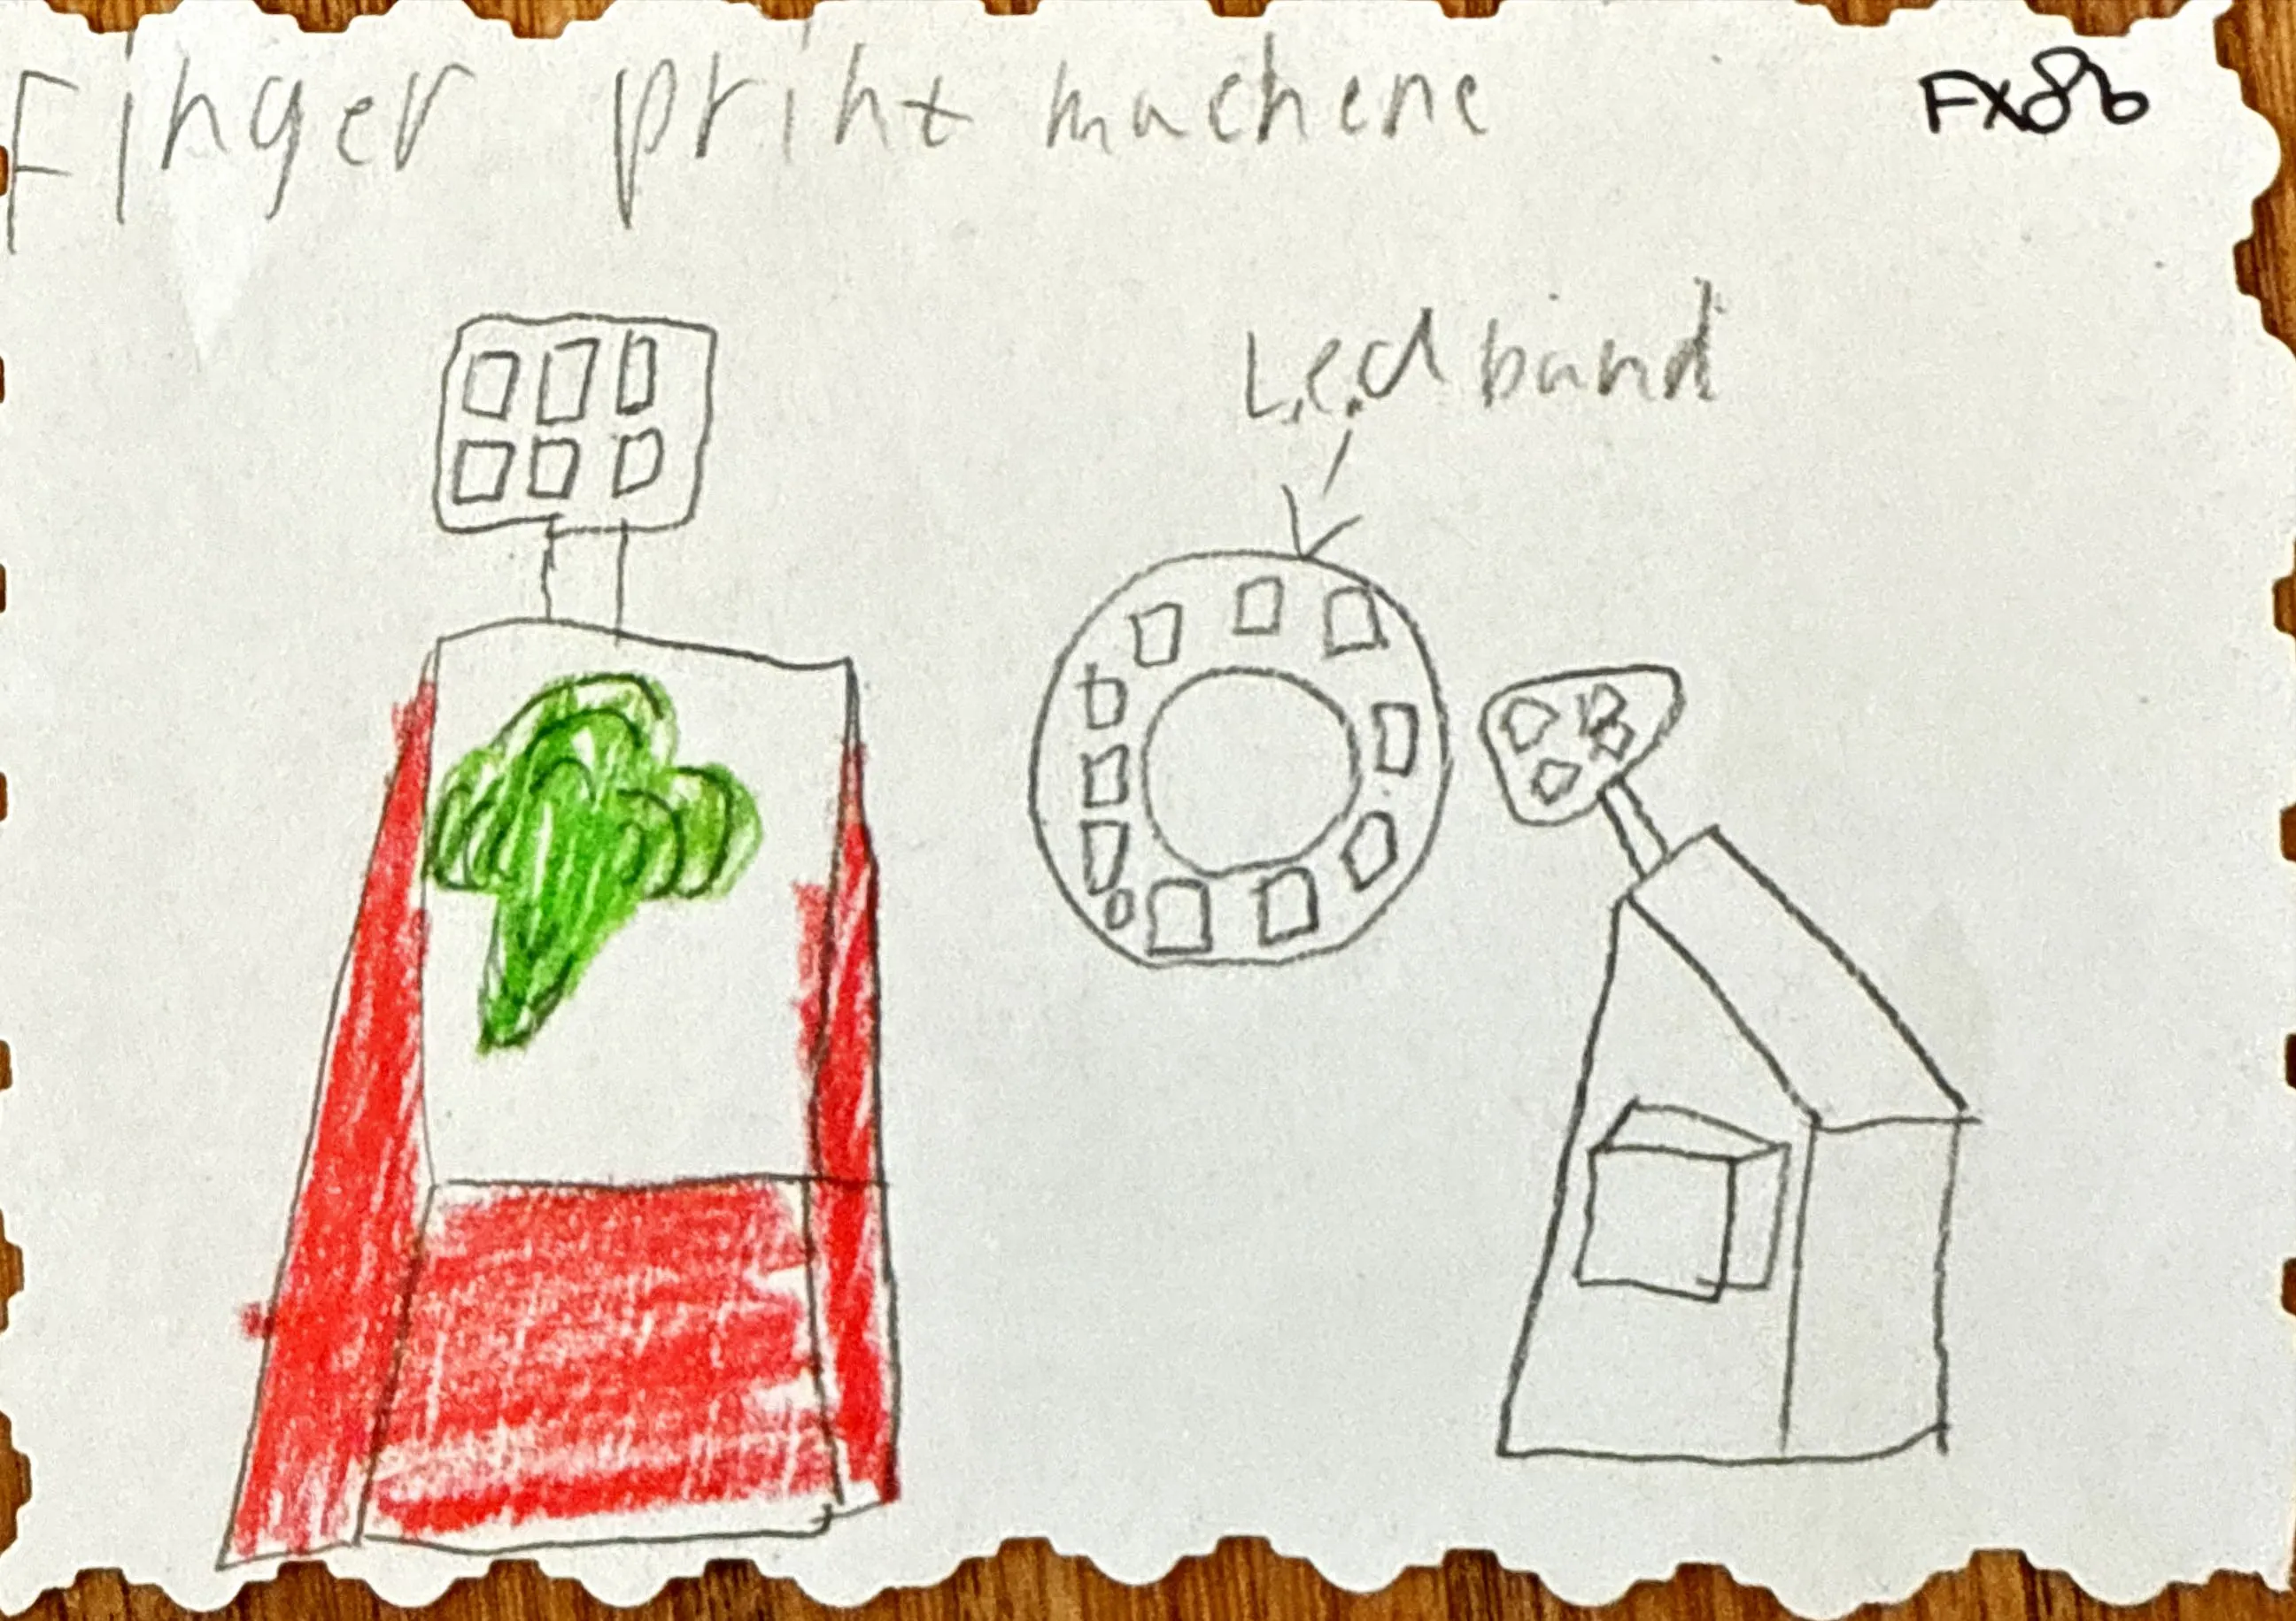 Finger print machene
FX86
L.e.d band